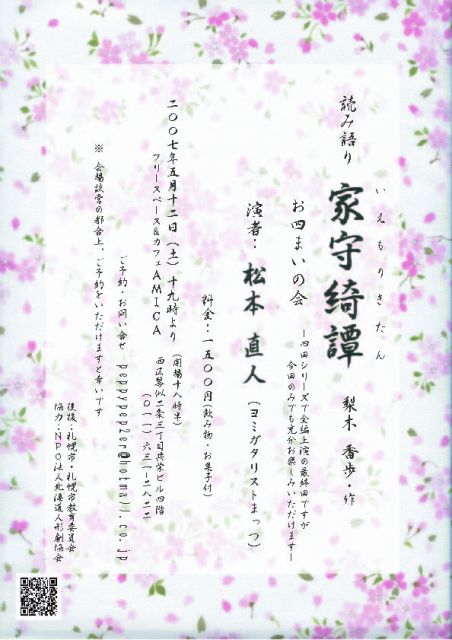 いえもりきたん
読み語り 家守綺譚 梨木 香歩・作
お四まいの会
―四回シリーズで全編上演の最終回ですが
今回のみでも充分お楽しみいただけます―
演者：松本 直人（ヨミガタリストまっつ）
料金：一五〇〇円（飲み物・お菓子付）
二〇〇七年五月十二日（土）十九時より
（開場十八時半）
フリースペース&カフェAMICA
西区琴似二条三丁目共栄ビル四階
（〇一一）六三一-二八二二
ご予約・お問い合せ peppypep2er@hotmail.co.jp
※ 会場設営の都合上、ご予約をいただけますと幸いです
後援：札幌市・札幌市教育委員会
協力：NPO法人北海道人形劇協会